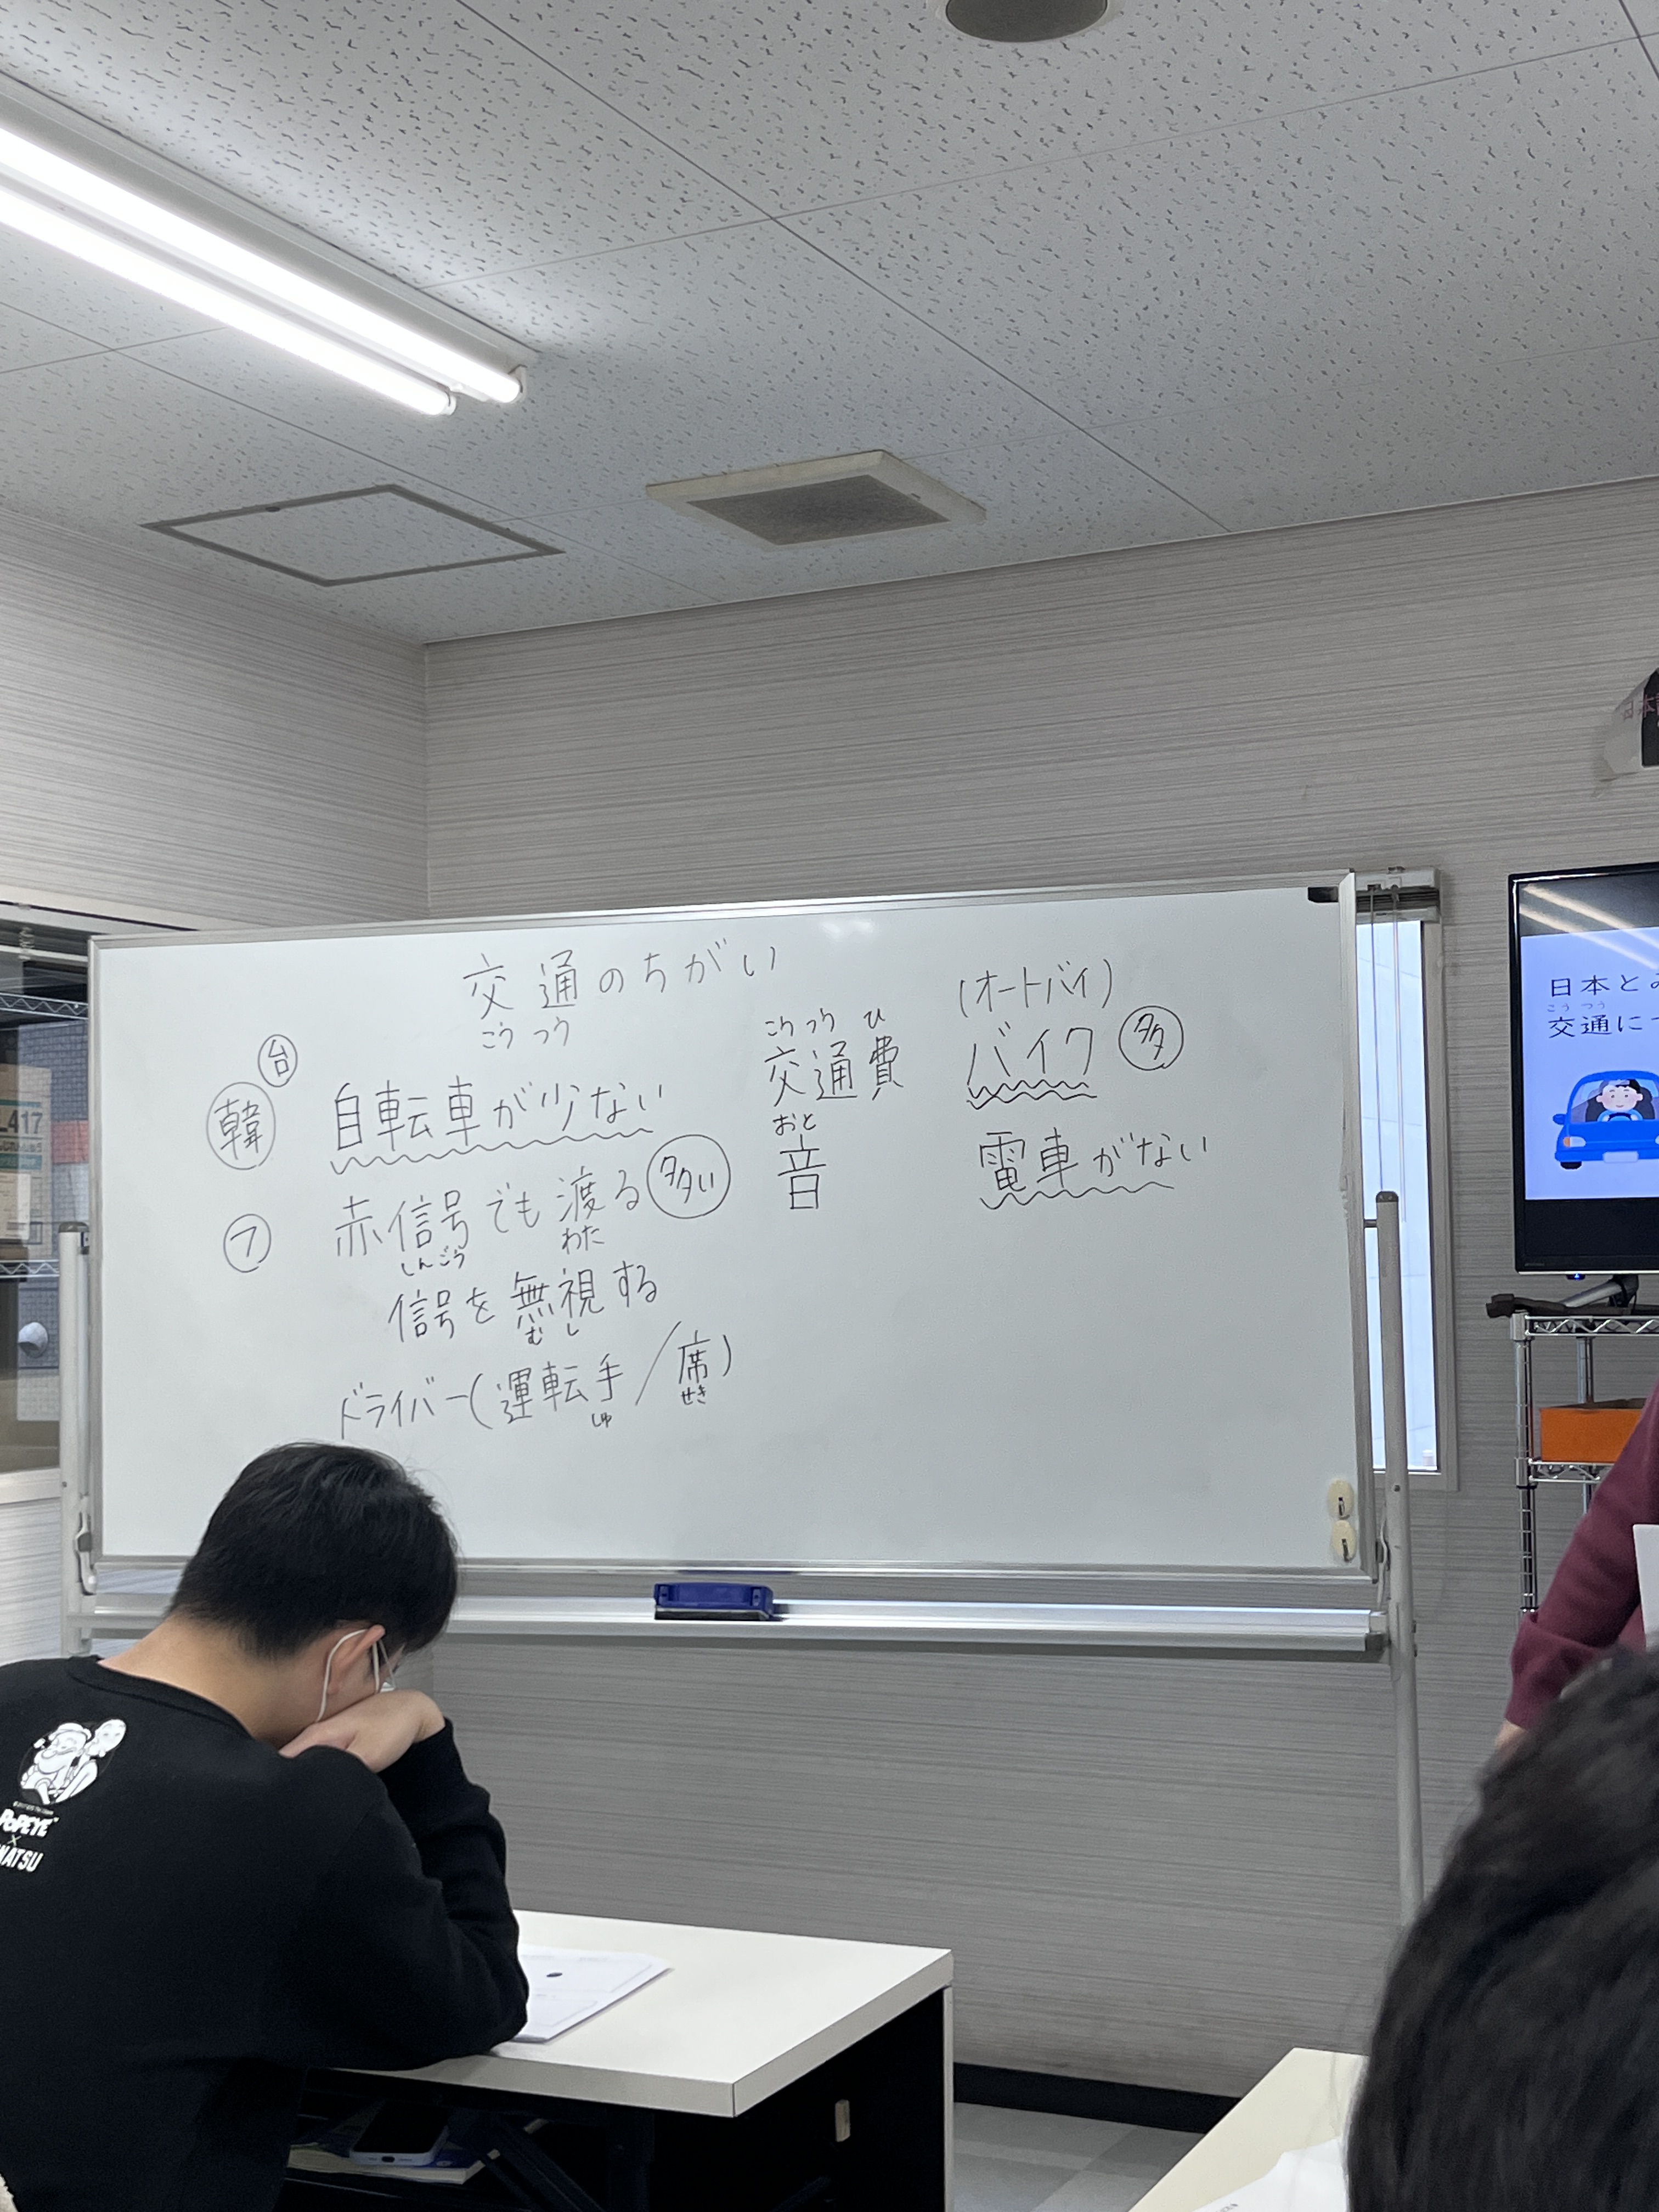 交通のちがい
こうつう
台
韓
自転車が少ない
フ
赤信号でも渡る 多い
しんごう わた
信号を無視する
むし
ドライバー(運転手/席)
しゅ せき
こうつうひ
交通費
おと
音
(オートバイ)
バイク 多
電車がない
日本とみ
こうつう
交通に
L417
POPEYE
×
NATSU